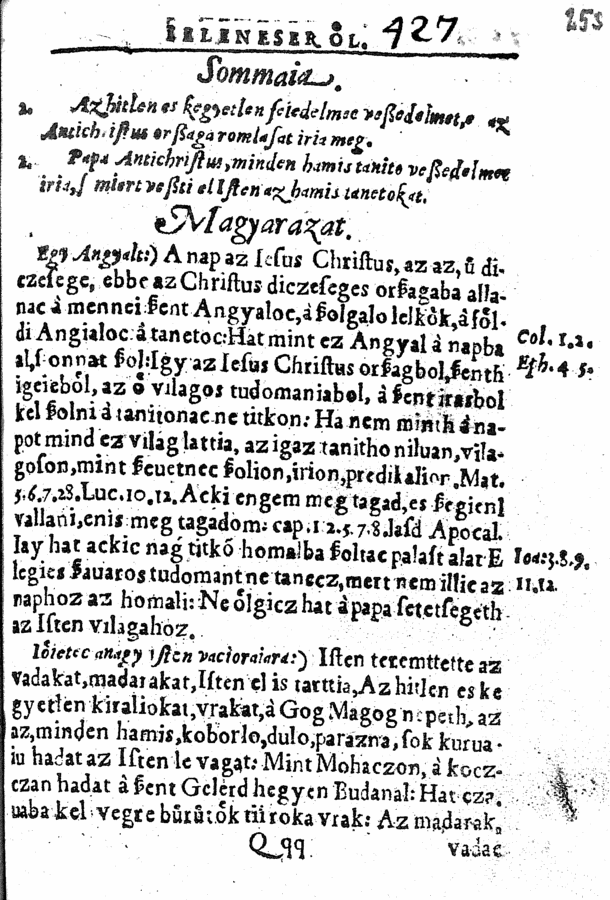 IELENESER ŐL. 427
255
Sommaia.
1. Az hitlen es kegyetlen feiedelmec veßedelmet, az
Antichristus orßaga romlasat iria meg.
2. Papa Antichristus, minden hamis tanito veßedelmet
iria, s miert veßti el Isten az hamis tanetokat.
Magyarazat.
Egy Angyalt:) A nap az Iesus Christus, az az, ű di-
czesege, ebbe az Christus diczeseges orßagaba alla-
nac à mennei ßent Angyaloc, à ßolgalo lelkők, à fől-
di Angialoc à tanetoc: Hat mint ez Angyal à napba
al, s onnat ßol: Igy az Iesus Christus orßagbol, ßenth
igeieből, az ő vilagos tudomaniabol, à ßent irasbol
kel ßolni à tanitonac ne titkon: Ha nem minth à na-
pot mind ez vilag lattia, az igaz tanitho niluan, vila-
goson, mint ßeuetnec ßolion, irion, predikalior. Mat.
5.6.7.28. Luc. 10.12. Acki engem meg tagad, es ßegienl
vallani, enis meg tagadom: cap. 1 2.5.7.8. lasd Apocal.
Iay hat ackic nag titkő homalba ßoltac palast alat E
legies ßauaros tudomant ne tanecz, mert nem illic az
naphoz az homali: Ne őlgicz hat à papa setetsegeth
az Isten vilagahoz.
Col. 1.2.
Eph. 4 5.
Ioa: 3.8.9.
11.12.
Iőietec a nagy isten vacioraiara:) Isten teremttette az
vadakat, madarakat, Isten el is tarttia, Az hitlen es ke
gyetlen kiraliokat, vrakat, à Gog Magog nepeth, az
az, minden hamis, koborlo, dulo, parazna, sok kurua-
iu hadat az Isten le vagat: Mint Mohaczon, à kocz-
czan hadat à ßent Gelerd hegyen Budanal: Hat
uaba kel vegre bűrűtők tii roka vrak: Az madarak,
Qqq
vadac